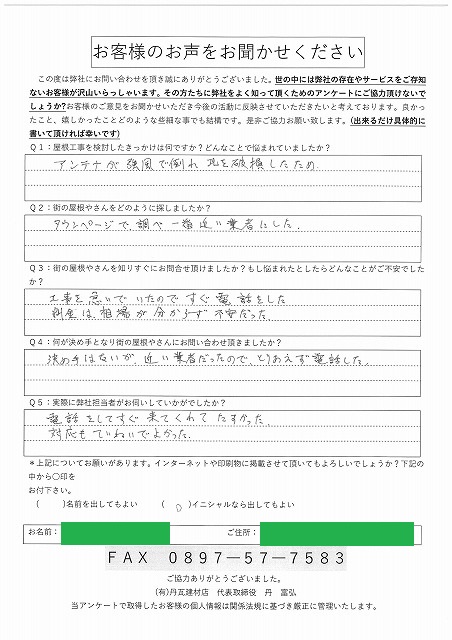 お客様のお声をお聞かせください
この度は弊社にお問い合わせを頂き誠にありがとうございました。世の中には弊社の存在やサービスをご存知
ないお客様が沢山いらっしゃいます。その方たちに弊社をよく知って頂くためのアンケートにご協力頂けないで
しょうか?お客様のご意見をお聞かせいただき今後の活動に反映させていただきたいと考えております。良かっ
たこと、嬉しかったことどのような些細な事でも結構です。是非ご協力お願い致します。(出来るだけ具体的に
書いて頂ければ幸いです)
Q1:屋根工事を検討したきっかけは何ですか?どんなことで悩まれていましたか?
アンテナが強風で倒れ瓦を破損したため.
Q2:街の屋根やさんをどのように探しましたか?
タウンページで調べ一番近い業者にした.
Q3:街の屋根やさんを知りすぐにお問合せ頂けましたか?もし悩まれたとしたらどんなことがご不安でした
か?
工事を急いでいたのですぐ電話をした
料金は相場が分からず不安だった.
Q4:何が決め手となり街の屋根やさんにお問い合わせ頂きましたか?
決め手はないが、近い業者だったので、とりあえず電話した.
Q5:実際に弊社担当者がお伺いしていかがでしたか?
電話をしてすぐ来てくれてたすかった.
対応もていねいでよかった.
*上記についてお願いがあります。インターネットや印刷物に掲載させて頂いてもよろしいでしょうか?下記の
中から〇印を
お付下さい。
( )名前を出してもよい ( 〇 )イニシャルなら出してもよい
お名前: ご住所:
FAX 0897-57-7583
ご協力ありがとうございました。
(有)丹瓦建材店 代表取締役 丹 富弘
当アンケートで取得したお客様の個人情報は関係法規に基づき厳正に管理いたします。